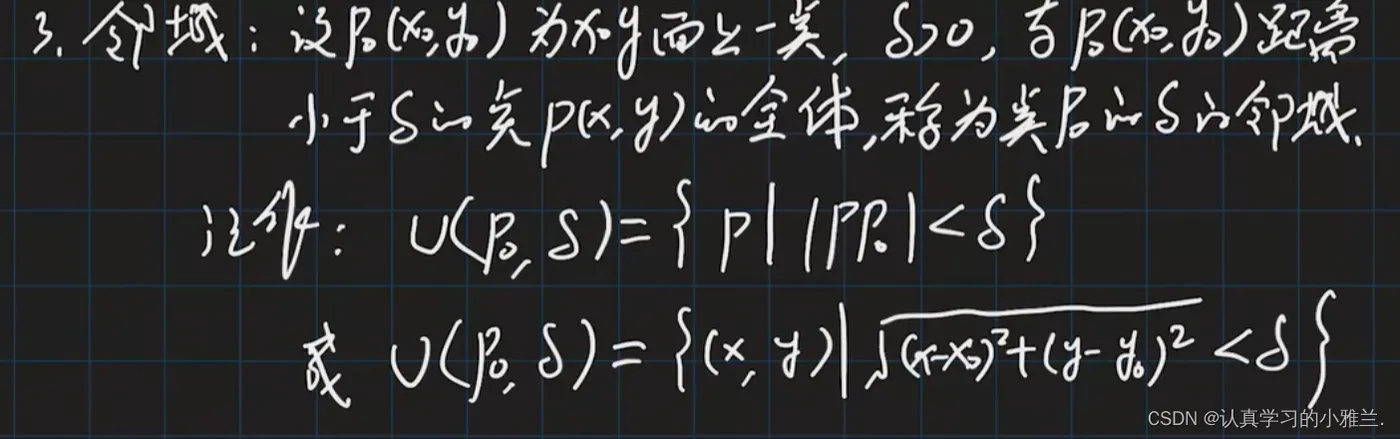 3. 邻域：设P₀(x₀,y₀)为xoy面上一点，δ>0，与P₀(x₀,y₀)距离
小于δ的点P(x,y)的全体，称为点P₀的δ的邻域.
记作：U(P₀,δ)={P||PP₀|<δ}
或 U(P₀,δ)={(x,y)|√((x-x₀)²+(y-y₀)²)<δ}
CSDN @认真学习的小雅兰.